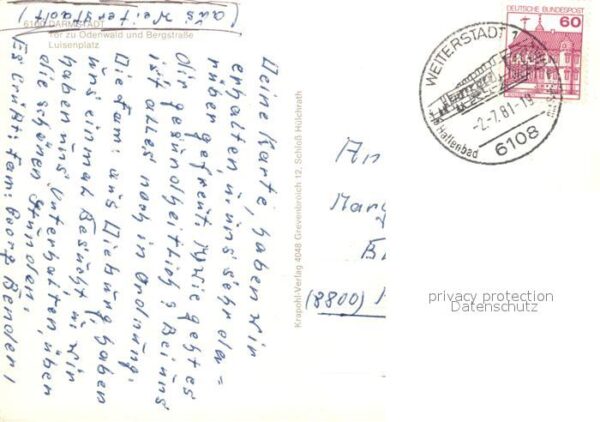 (aus Weiterstadt)
6100 DARMSTADT
Tor zu Odenwald und Bergstraße
Luisenplatz
Deine Karte, haben wir
erhalten u. uns sehr da=
rüber gefreut. Wie geht es
dir gesundheitlich? Bei uns
ist alles noch in Ordnung.
Die Fam: aus Dieburg, haben
uns einmal Besucht u. wir
haben uns Unterhalten, über
die schönen Stunden.
Es Grüßt: Fam: Georg Benden!
Krapohl-Verlag 4048 Grevenbroich 12, Schloß Hülchrath
DEUTSCHE BUNDESPOST
60
WEITERSTADT 1
-2.-7.81-19
Hallenbad
6108
An
(8800)
privacy protection
Datenschutz